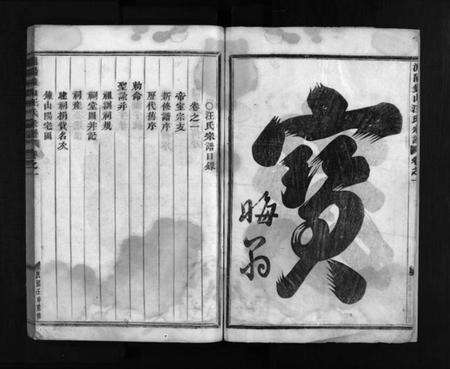 寶
晦翁
○汪氏宗譜目錄
卷之一
帝室宗支
新修譜序
歷代舊序
勅命
聖諭并
祖訓祠規
祠堂圖并記
祠產
建祠捐貲名次
鍾山陽宅圖